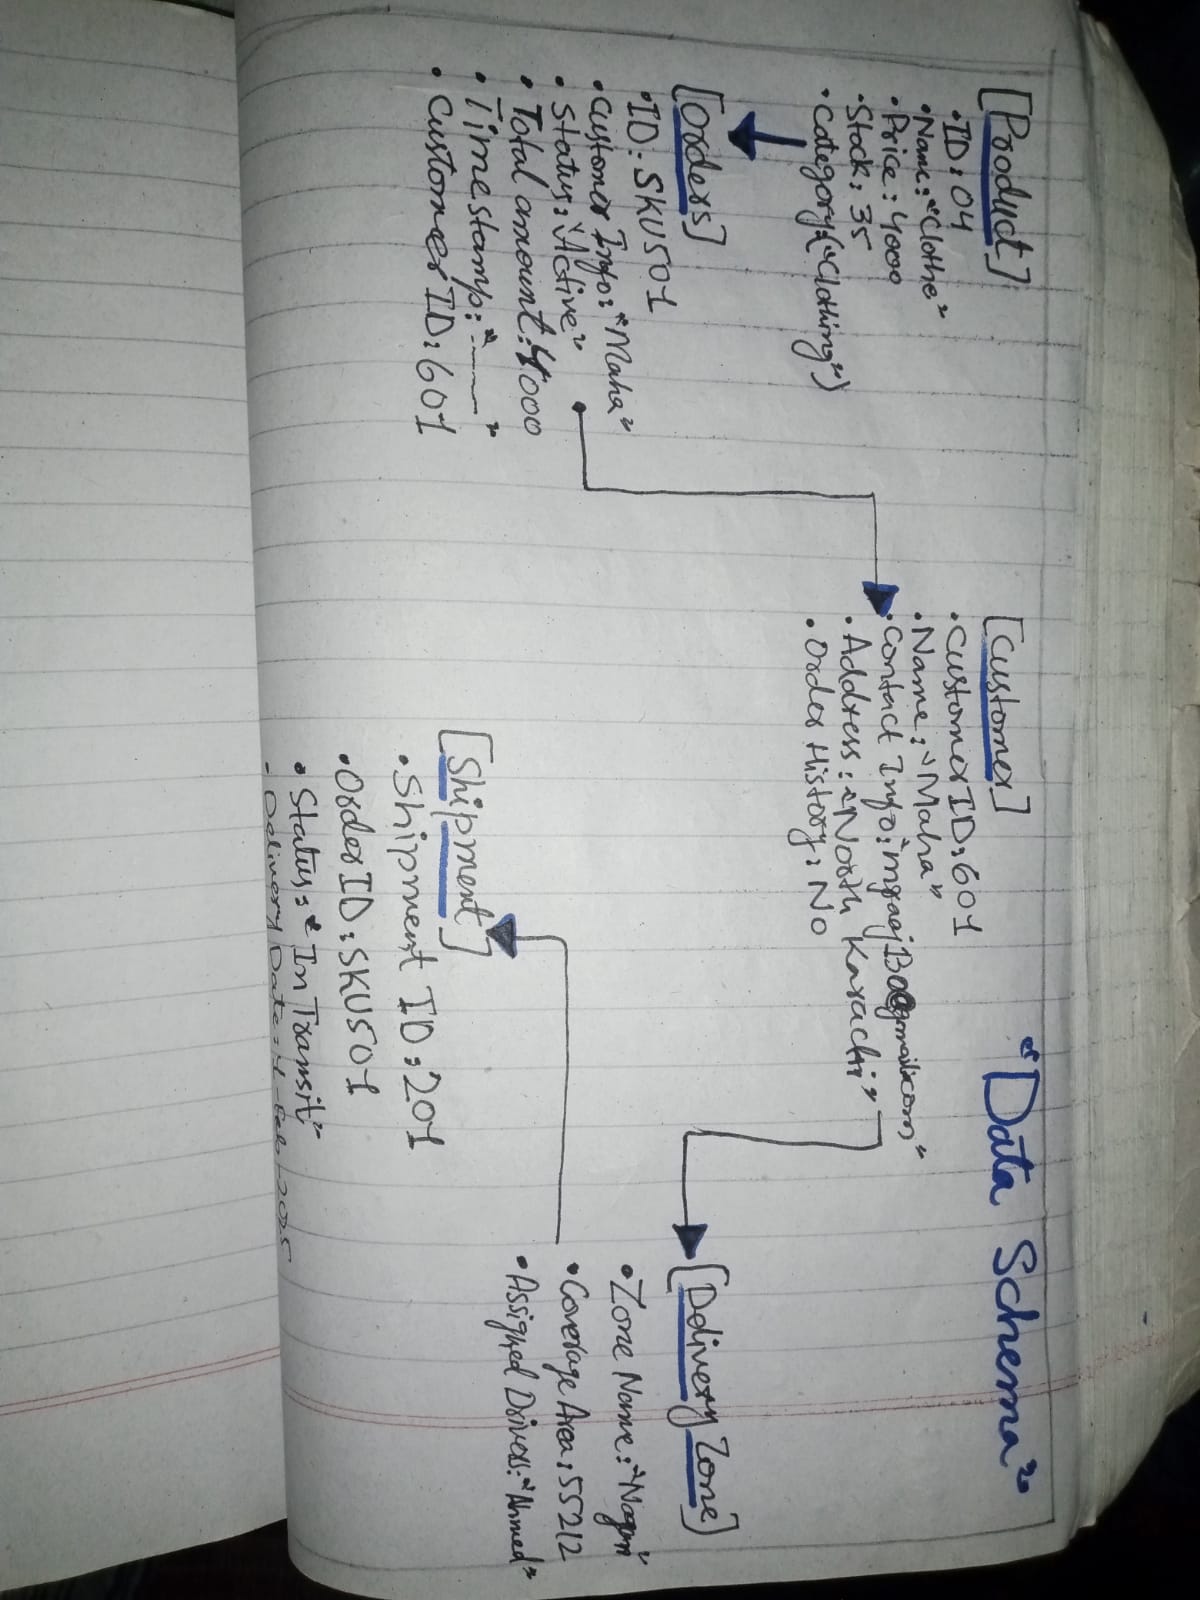 "Data Schema"
[Product]
• ID: 04
• Name: "Clothe"
• Price: 4000
• Stock: 35
• Category: ("Clothing")
[Orders]
• ID: SKU501
• Customer Info: "Maha"
• Status: "Active"
• Total amount: 4000
• Timestamp: "-----"
• Customer ID: 601
[Customer]
• Customer ID: 601
• Name: "Maha"
• Contact Info:
• Address: "North Karachi"
• Order History: No
[Delivery Zone]
• Zone Name:
• Coverage Area: 55212
• Assigned Drivers: "Ahmed"
[Shipment]
• Shipment ID: 201
• Order ID: SKU501
• Status: "In Transit"
- Delivery Date: 4-Feb-2025